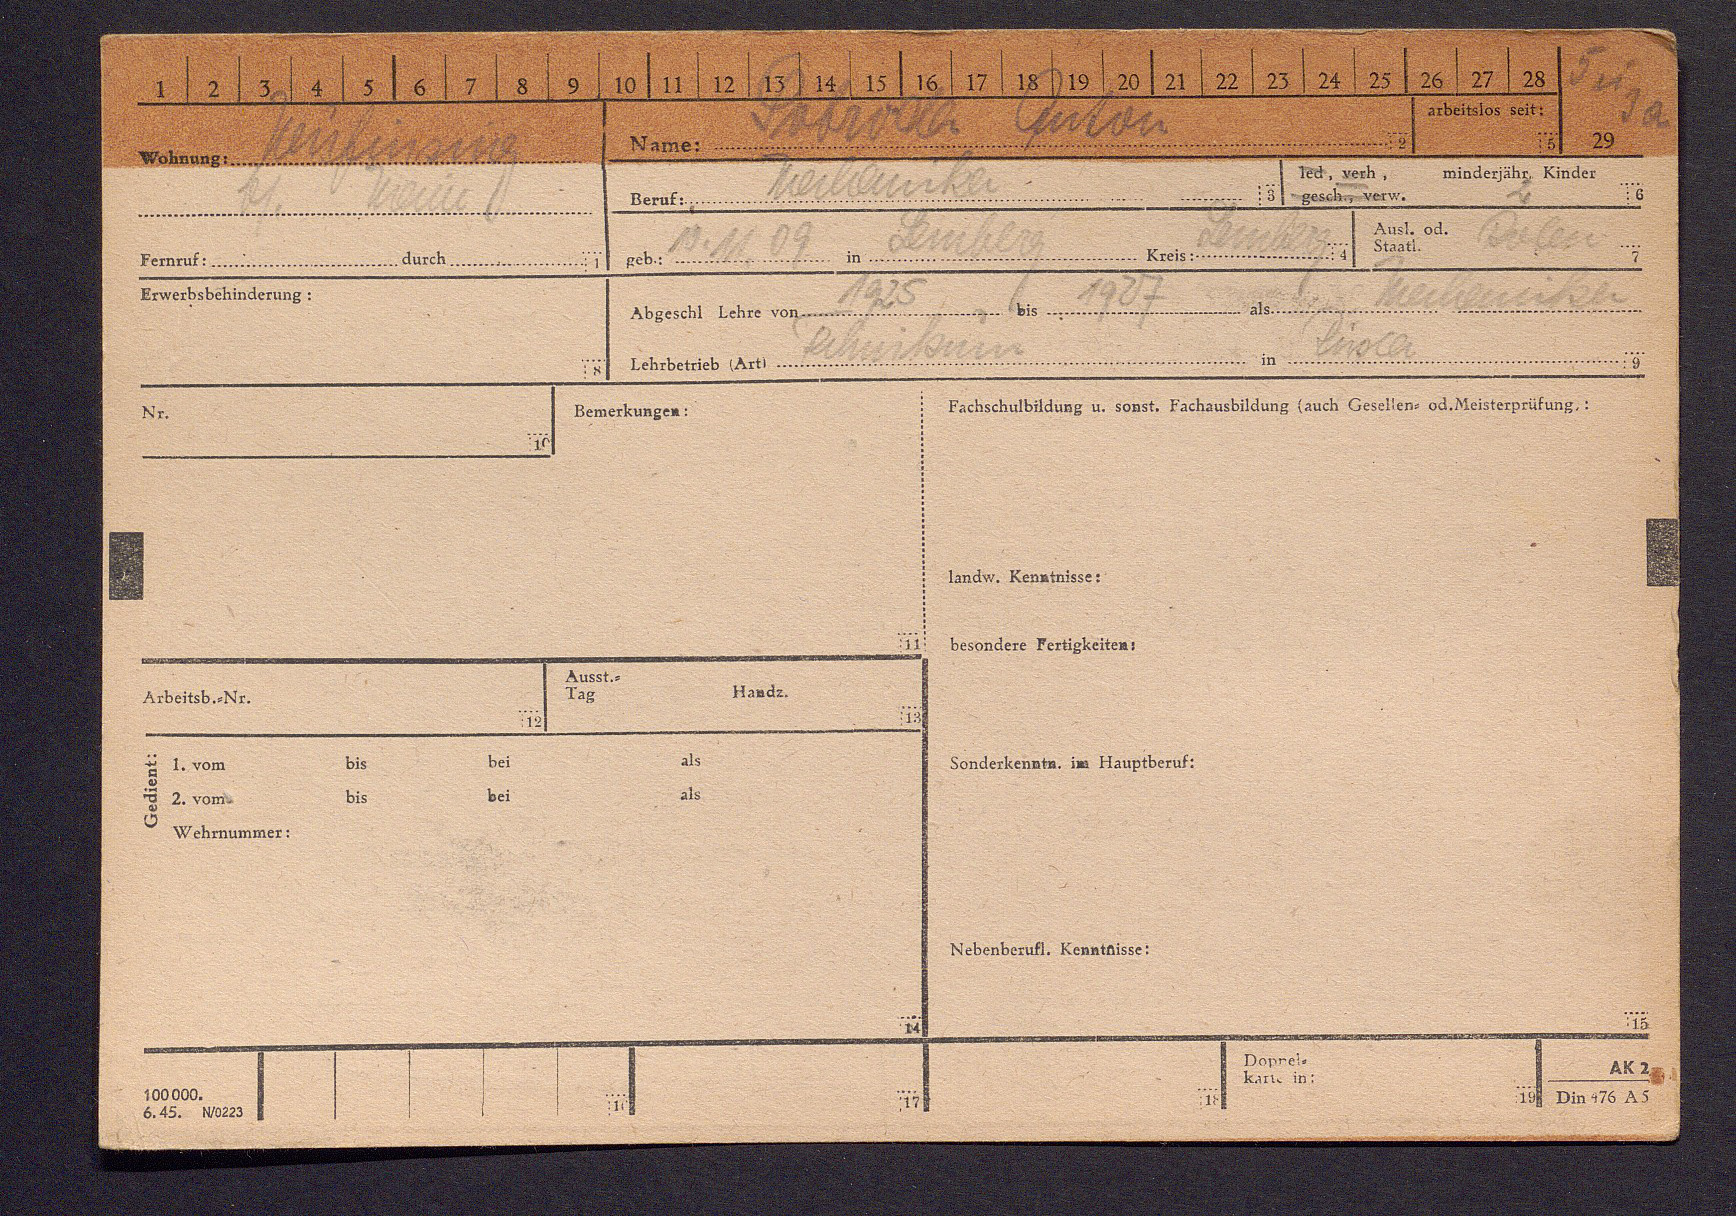 1 2 3 4 5 6 7 8 9 10 11 12 13 14 15 16 17 18 19 20 21 22 23 24 25 26 27 28
29
Wohnung:
Name: Anton 2
arbeitslos seit: 5
Beruf: Mechaniker 3
led, verh, gesch., verw.
minderjähr. Kinder 2 6
Fernruf: durch 1
geb.: 11. 09 in Lemberg Kreis: Lemberg 4
Ausl. od. Staatl. Polen 7
Erwerbsbehinderung: 8
Abgeschl Lehre von 1925 bis 1927 als Mechaniker
Lehrbetrieb (Art) Technikum in 9
Nr. 10
Bemerkungen: 11
Fachschulbildung u. sonst. Fachausbildung (auch Gesellen= od.Meisterprüfung,:
landw. Kenntnisse:
besondere Fertigkeiten:
Arbeitsb.=Nr. 12
Ausst.=
Tag Handz. 13
Gedient:
1. vom bis bei als
2. vom bis bei als
Wehrnummer:
14
Sonderkenntn. im Hauptberuf:
Nebenberufl. Kenntnisse:
15
100000.
6.45. N/0223
16 17 18
Doppel=
karte in: 19
AK 2
Din 476 A5